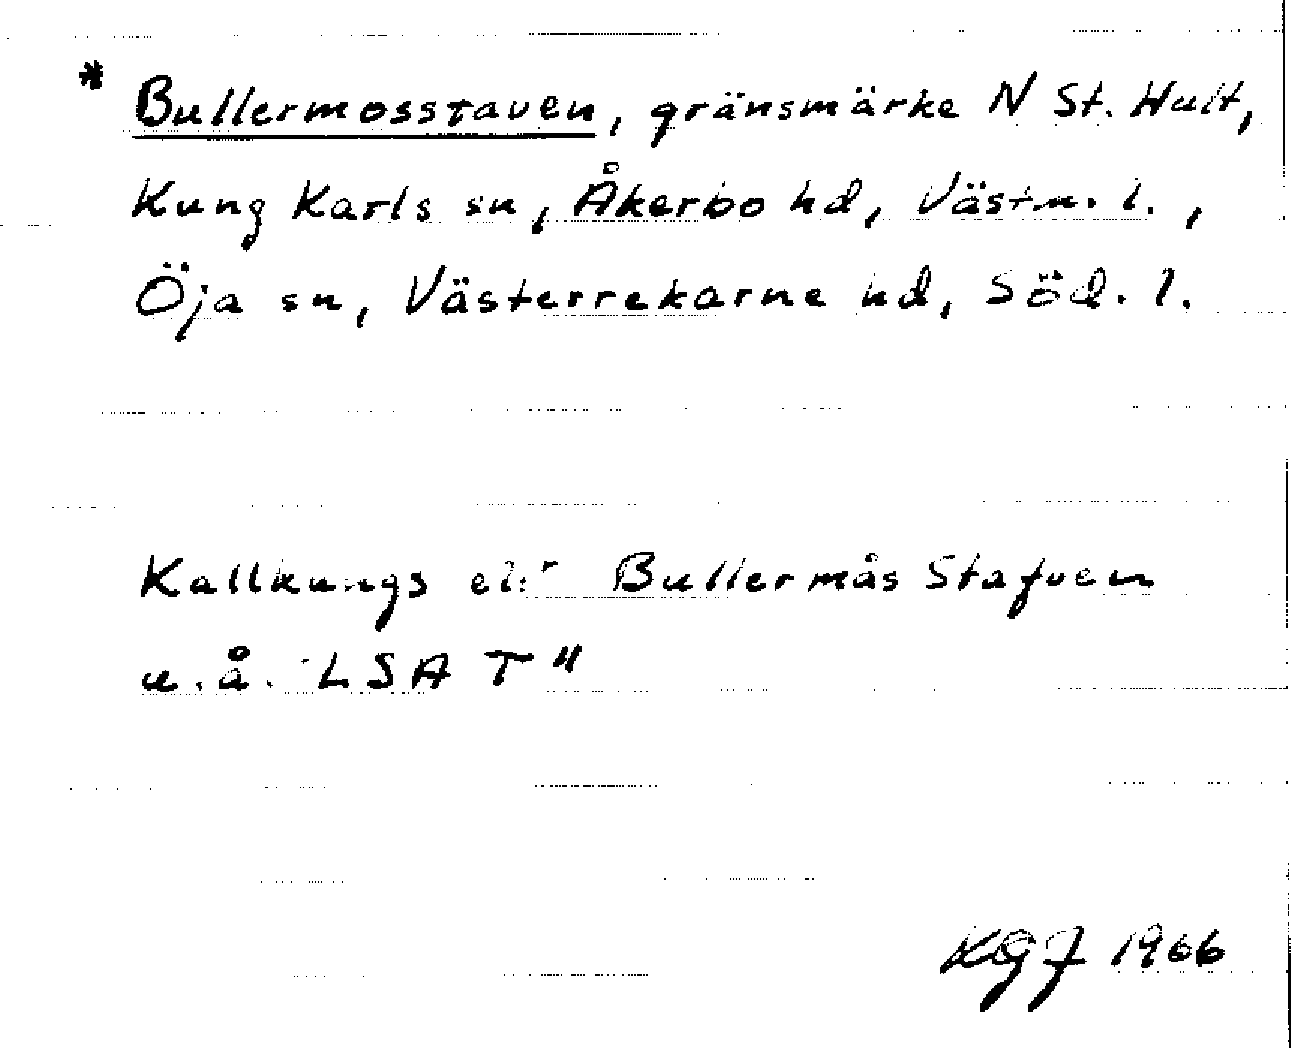 * Bullermosstaven, gränsmärke N St. Hult,
Kung Karls sn, Åkerbo hd, Västm. l.,
Öja sn, Västerrekarne hd, Söd. l.
Kallkungs ellr Bullermås Stafven
u.å. LSA T"
KGJ 1966